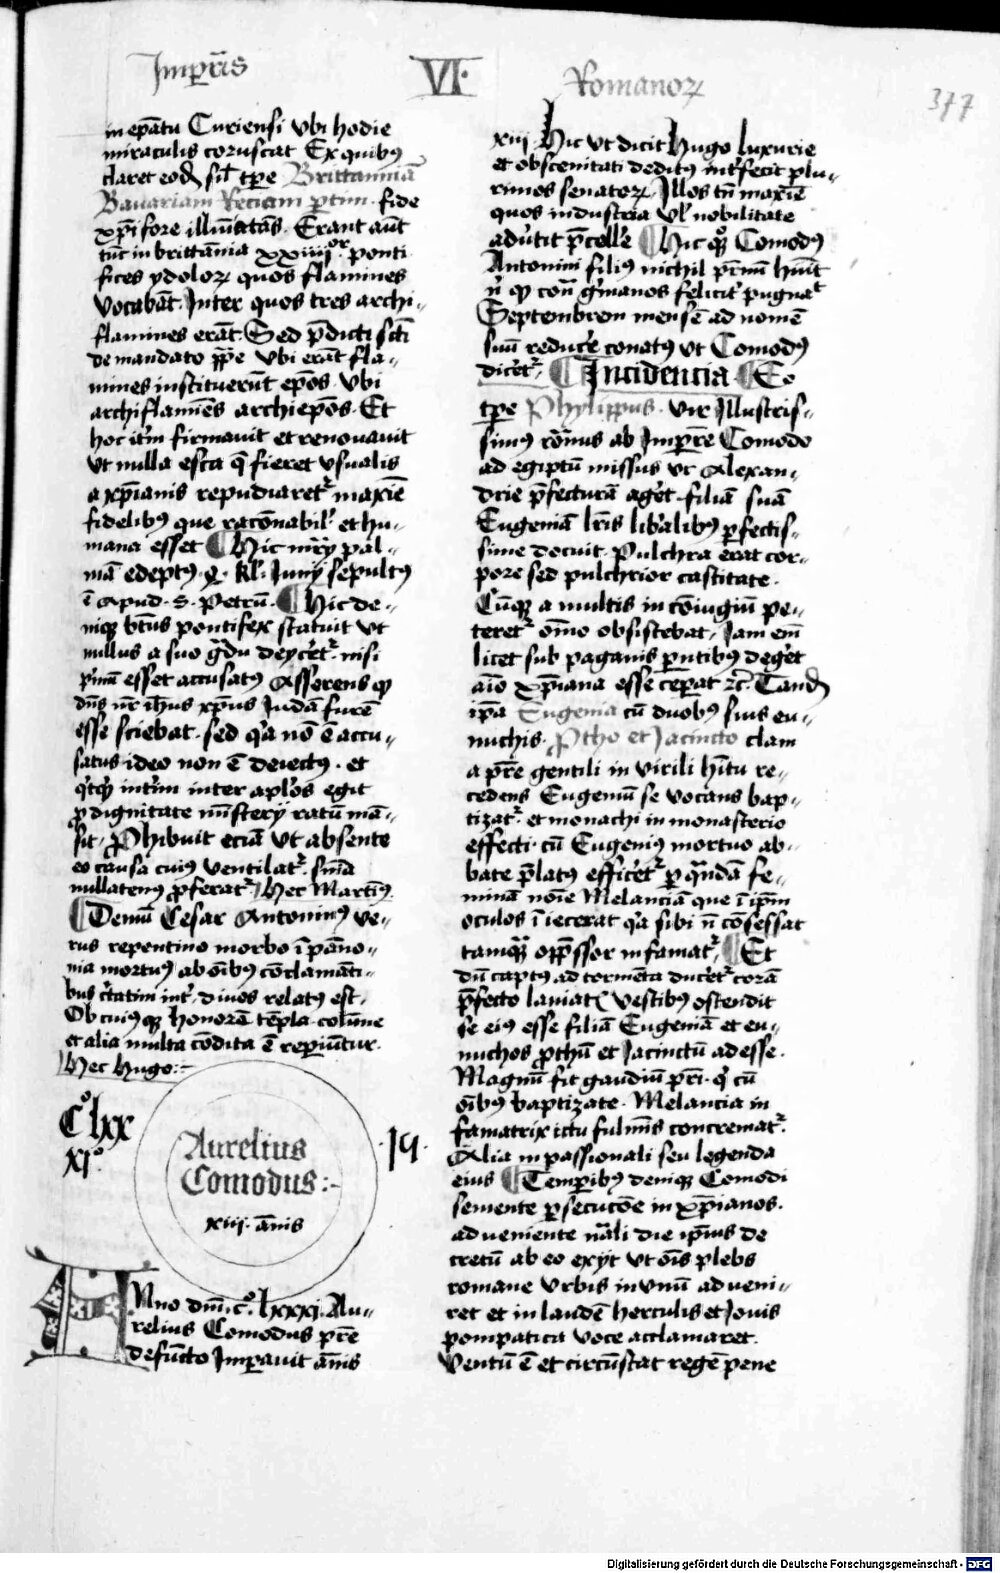 Imperat͛is
VI·
Romanoꝝ
377
in ep̄atu Curiensi Ubi hodie
miraculis coruscat Ex quibꝯ
claret eod̄ sil̄ tꝑe Brittanniā
Bauariam Reciam ꝑtim · fide
xp̄i fore illuīatas̄ · Erant aūt
tūc in brittānia xxviiiͦʳ ponti
fices ydoloꝝ quos flamines
vocabāt · Inter quos tres archi-
flamines erāt · Sed p̄dicti sc̄ti
de mandato pp̄e Ubi erāt fla-
mines instituerūt ep̄os · Ubi
archiflamīes archiep̄os · Et
hoc itm̄ firmauit et renouauit
Ut nulla esca q̄ fieret Usualis
a xp̄ianis repudiaret᷑ maxīe
fidelibꝯ que racōnabil᷑ et hu-
mana esset ¶ Hic mr̄ij pal-
mā edeptꝯ · ꝙ · kl᷑ · Iunij sepultꝯ
ē apud · S · Petrū · ¶ Hic de-
niqꝫ btūs pontifex statuit Ut
nullus a suo g̃du deyceret᷑ · nisi
p̓mū esset accusatꝯ Asserens ꝙ
dn̄s nr̄ ih̄us xp̄us Iudā furē
esse sciebat · sed q̓a nō ē accu-
satus · ideo non ē deiectꝯ · et
q̓tqͥd int̓im inter apl̓os egit
ꝓ dignitate mīsterij ratū mā-
sit · Ꝓhibuit eciā ut absente
eo causa cuiꝯ ventilat᷑ · snīa
nullatenꝯ ꝓferat᷑ · Hec Martīꝯ
¶ Demū Cesar Antoninꝯ Ve-
rus repentino morbo ī pāno-
nia mortuꝯ ab oībꝯ cōclamāti-
bus c̓tatim int̓ diuos relatꝯ est ·
Ob cuiꝯqꝫ honorē tēpla · colūne
et alia multa cōdita ē reperiūtur ·
Hec Hugo :-
Cͦ lxx
xiͦ ·
Aurelius
Comodus :-
xiii · ānis
19 ·
Anno dn̄i · cͦ · lxxxi · Au-
relius Comodus pr̄e
defūcto Imperauit ānis
xiij · Hic Ut dicit Hugo luxurie
et obscenitati deditꝯ int̓fecit plu-
rimos senatoꝝ · Illos tn̄ maxīe
quos industria Ul̓ nobilitate
adu̓tit p̄celle ¶ Hic qͦqꝫ Comodꝯ
Antonini filiꝯ nichil pr̄nū hūit
n̓ ꝙ con̄ g̓manos felicit̓ pugnaᵗ
Septembrem mensē ad nomē
suū reduce̓ conatꝯ ut Comodꝯ
dicet᷑ · ¶ Incidencia · ¶ Eo
tꝑe Phylippus · vir Illustris-
simꝯ rōmus ab Impere̓ Comodo
ad egiptū missus ut Alexan-
drie p̄fecturā aget̓ · filiā suā
Eugeniā lr̄is lib̓alibꝯ perfectis-
sime docuit · Pulchra erat cor-
pore sed pulchrior castitate ·
Cūqꝫ a multis in cōiugiū pe-
teret᷑ om̄o obsistebat · Iam em̄
licet sub paganis pn̄tibꝯ deget̓
aīo xp̄iana esse cep̓at ꝛc̄ · Tand̄
ip̄a Eugenia cū duobꝯ suis eu-
nuchis · Ptho et Iacincto clam
a pr̄e gentili in virili hītu re-
cedens Eugeniū se vocans bap-
tizat᷑ · et monachi in monasterio
effecti · cū Eugeniꝯ mortuo ab-
bate p̄latꝯ efficet᷑ ꝑ quādā fe-
minā noīe Melanciā que ī ip̄m
oculos īiecerat q̓a sibi n̄ cōsessat
tamqͣꝫ opp̄ssor infamat᷑ · ¶ Et
dū captꝯ ad tormēta ducet᷑ corā
p̄fecto laniatꝭ vestibꝯ ostendit
se eiꝯ esse filiā Eugeniā et eu-
nuchos ꝓthū et Iacinctū adesse ·
Magnū fit gaudiū pr̄i · q̓ cū
oībꝯ baptizate · Melancia in
famatrix ictu fulmīs concremat᷑ ·
Alia in passionali seu legenda
eius ¶ Temꝑibꝯ deniqꝫ Comodi
semente ꝑsecucōe in xp̄ianos ·
adueniente nāli die ip̄ius de
cretū ab eo exijt ut oīs plebs
romane urbis in unū adueni-
ret et in laudē herculis et Iouis
pompatica voce acclamaret ·
Ventū ē et circūstat regē pene
Digitalisierung gefördert durch die Deutsche Forschungsgemeinschaft - DFG